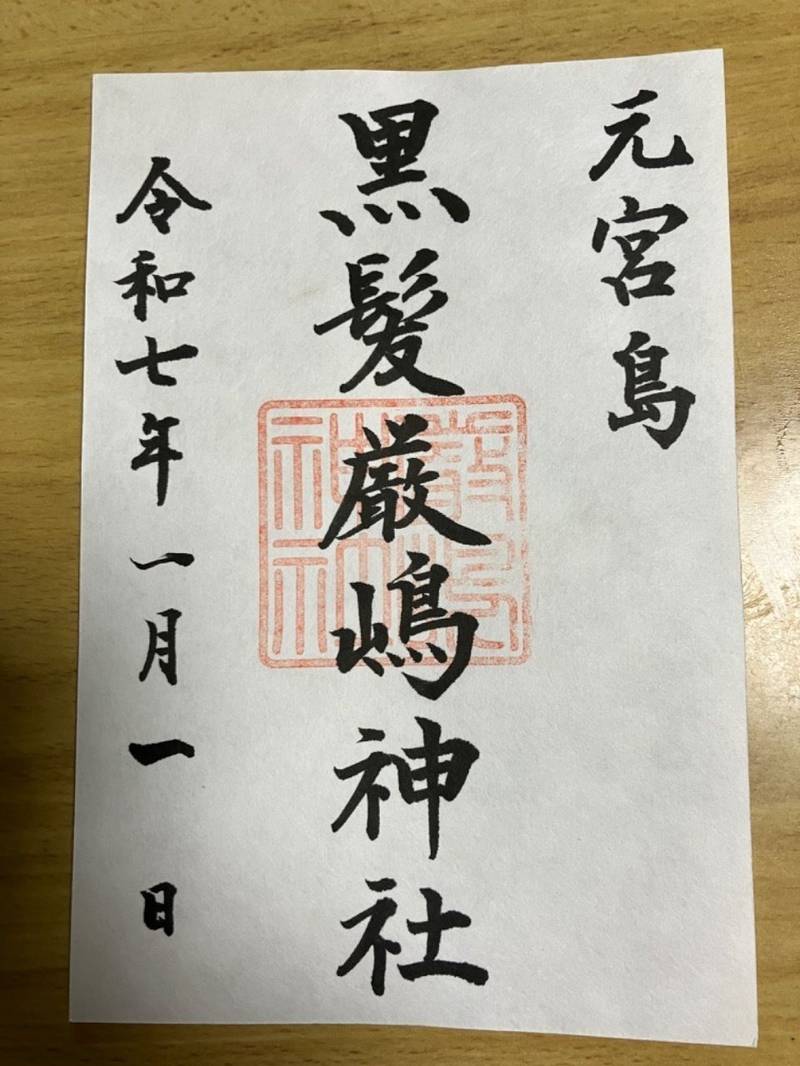 元宮島
黒髪厳嶋神社
厳嶋
神社
令和七年一月一日